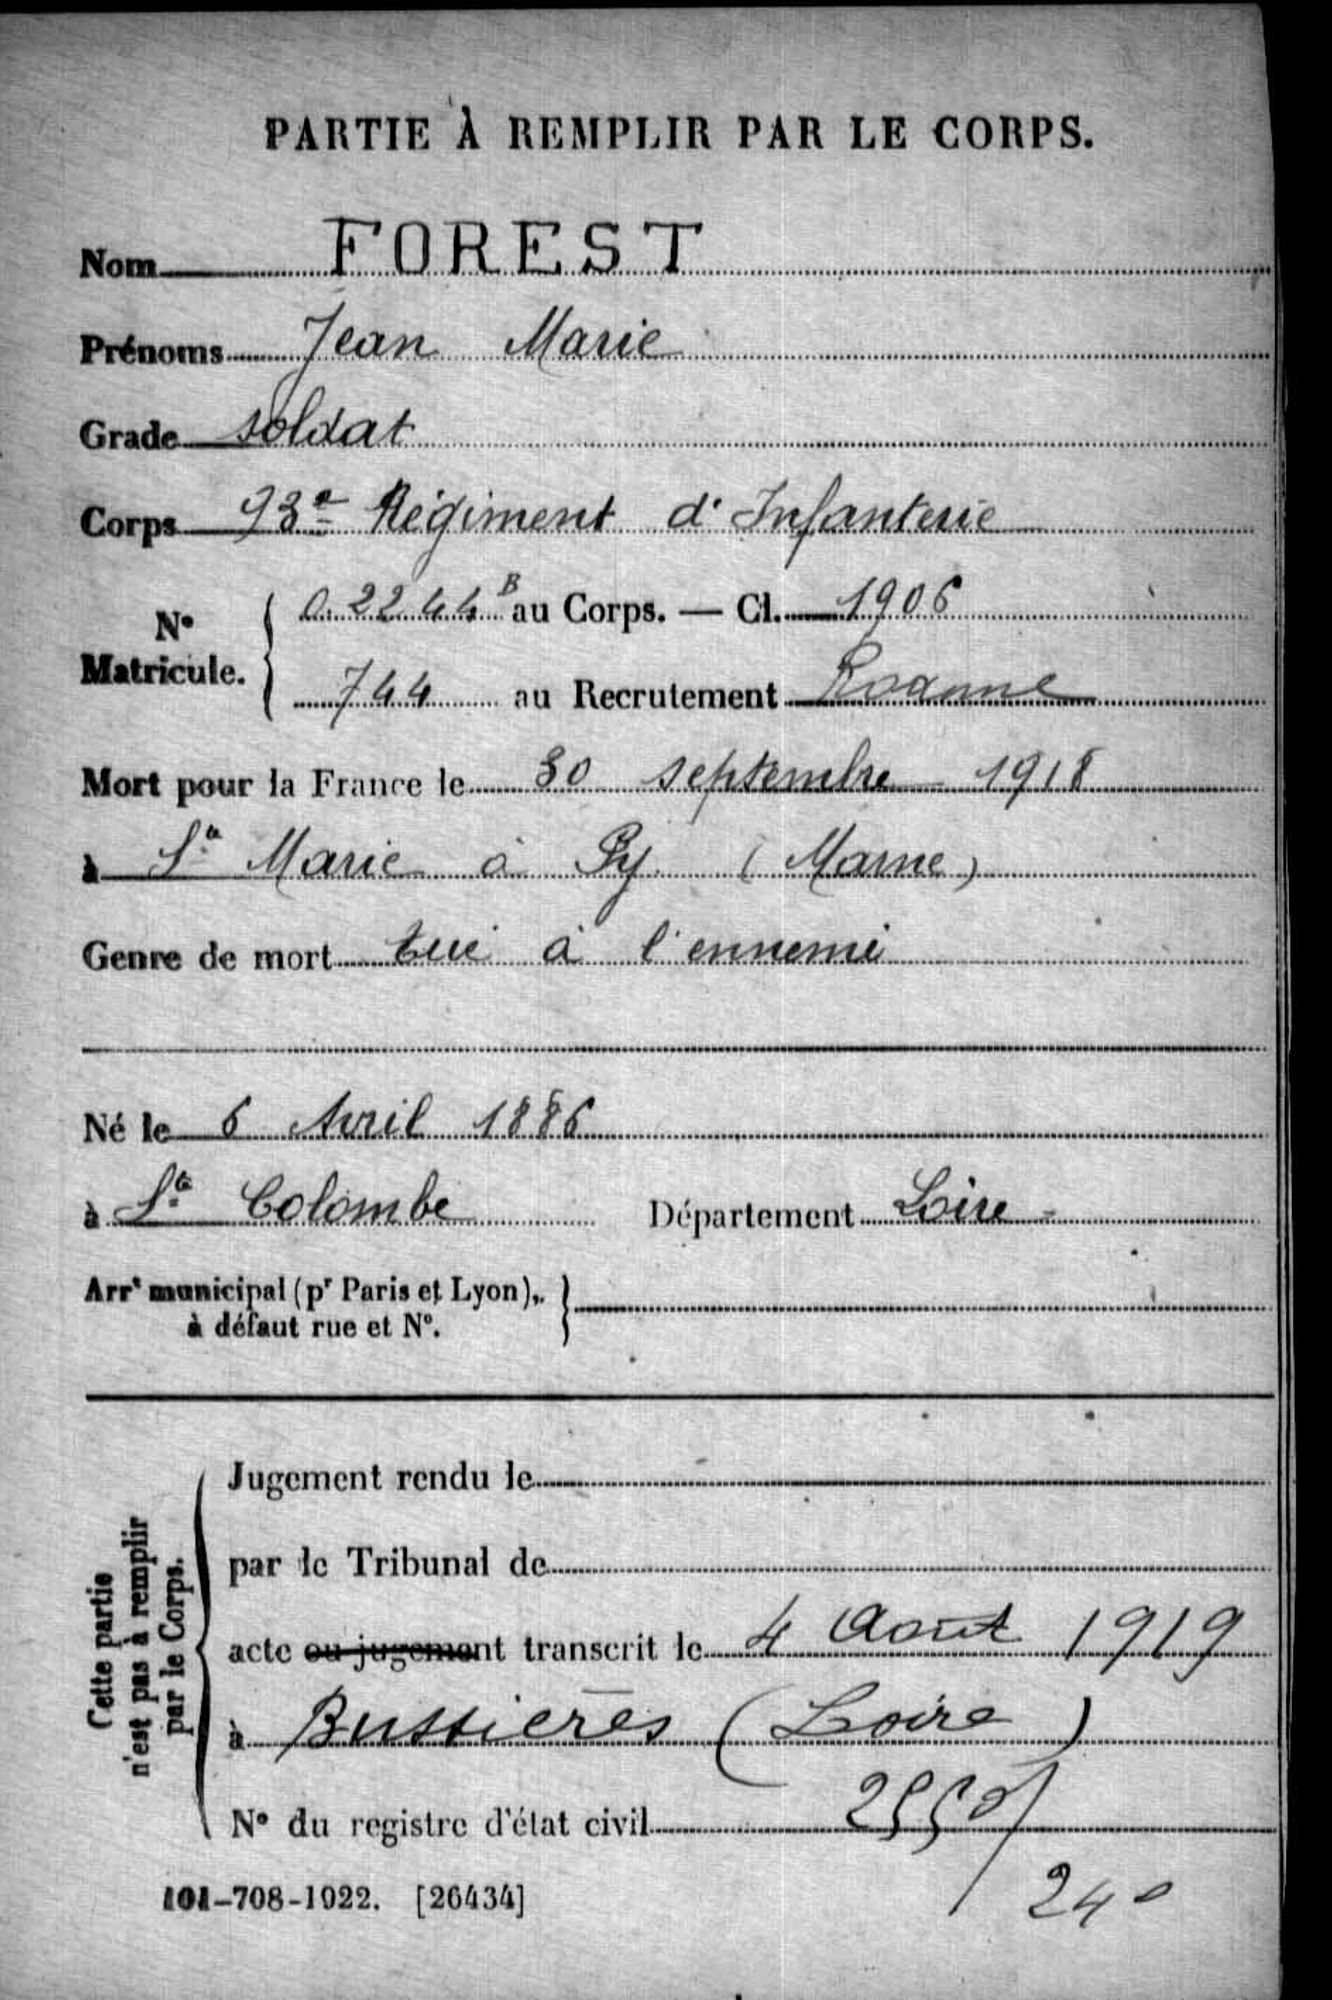 PARTIE À REMPLIR PAR LE CORPS.
Nom FOREST
Prénoms Jean Marie
Grade soldat
Corps 93e Régiment d'Infanterie
N° Matricule. { 0.2244 B au Corps. — Cl. 1906
744 au Recrutement Roanne
Mort pour la France le 30 septembre 1918
à Ste Marie à Py (Marne)
Genre de mort tué à l'ennemi
Né le 6 Avril 1886
à Ste Colombe Département Loire
Arrt municipal (pr Paris et Lyon),
à défaut rue et N°. }
Cette partie
n'est pas à remplir
par le Corps.
Jugement rendu le
par le Tribunal de
acte ou jugement transcrit le 4 Août 1919
à Bussières (Loire)
N° du registre d'état civil
240
101-708-1922. [26434]